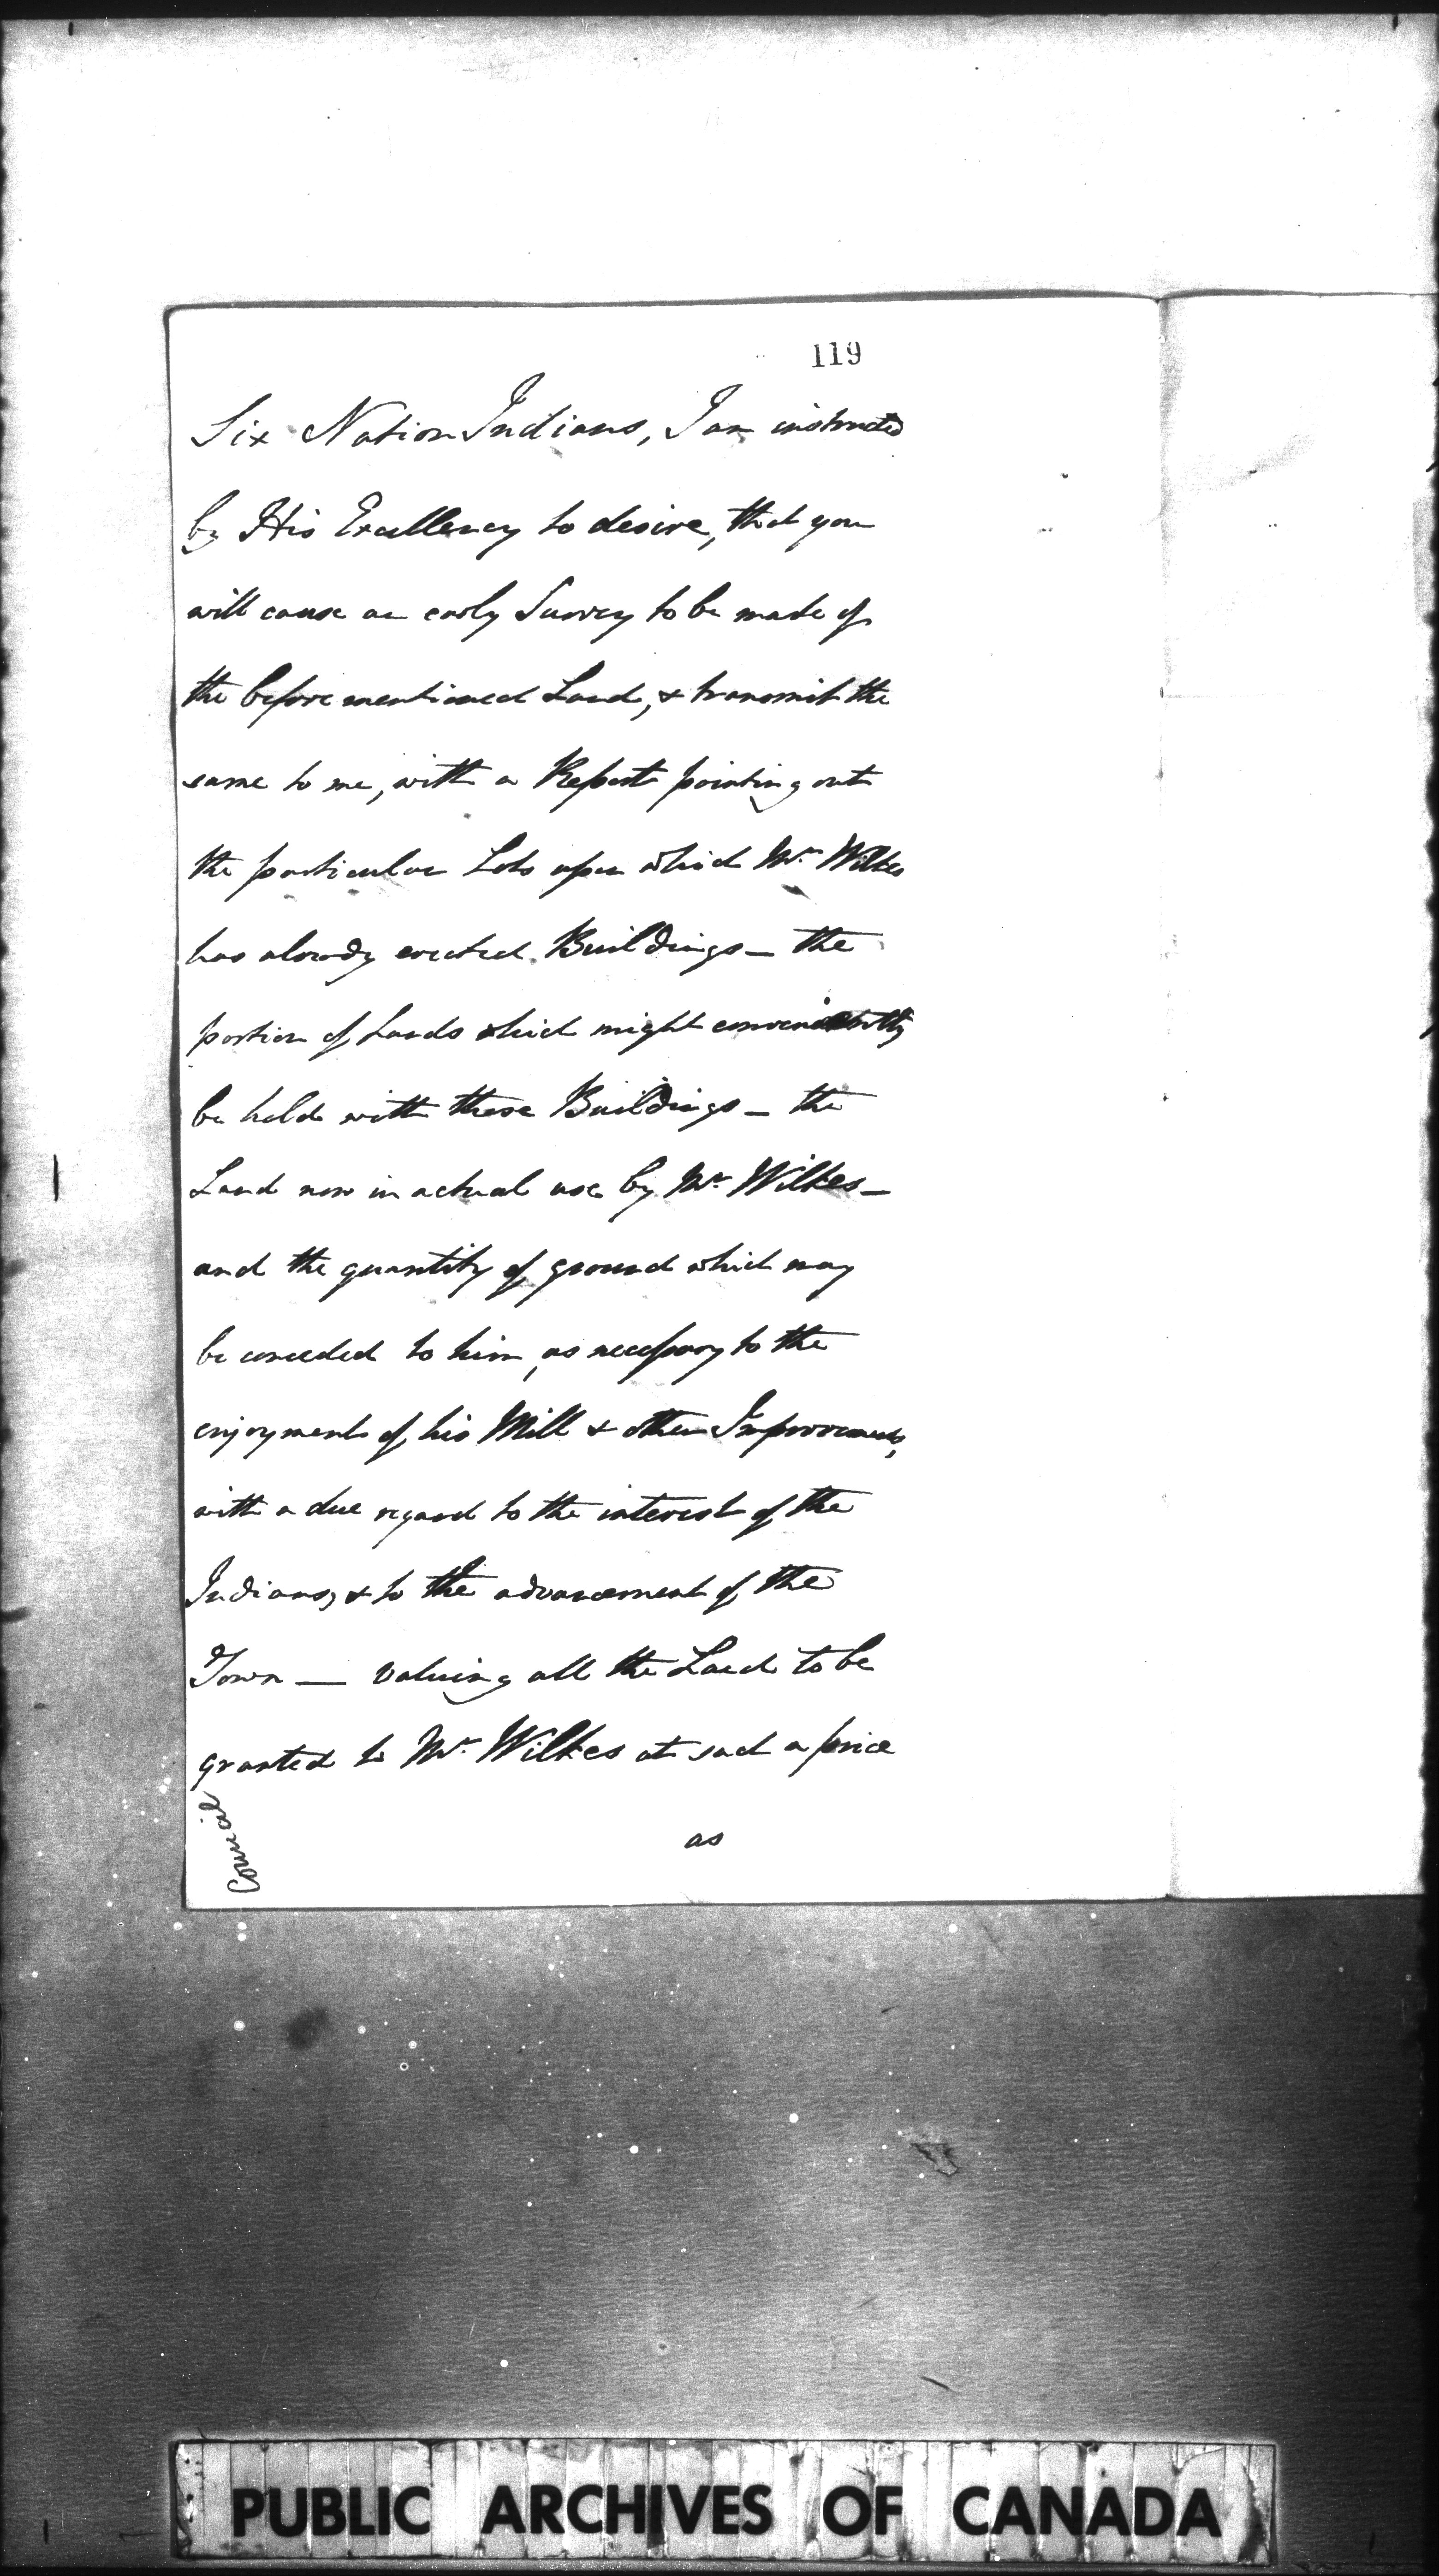 119
Six Nation Indians, I am instructed
by His Excellency to desire, that you
will cause an early Survey to be made of
the before mentioned Land, & transmit the
same to me, with a Report pointing out
the particular Lots upon which Mr. Wilkes
has already erected Buildings — the
portion of Lands which might conveniently
be held with these Buildings — the
Land now in actual use by Mr. Wilkes —
and the quantity of ground which may
be conceded to him, as necessary to the
enjoyment of his Mill & other Improvements,
with a due regard to the interest of the
Indians, & to the advancement of the
Town — valuing all the Land to be
granted to Mr. Wilkes at such a price
as
Council
PUBLIC ARCHIVES OF CANADA